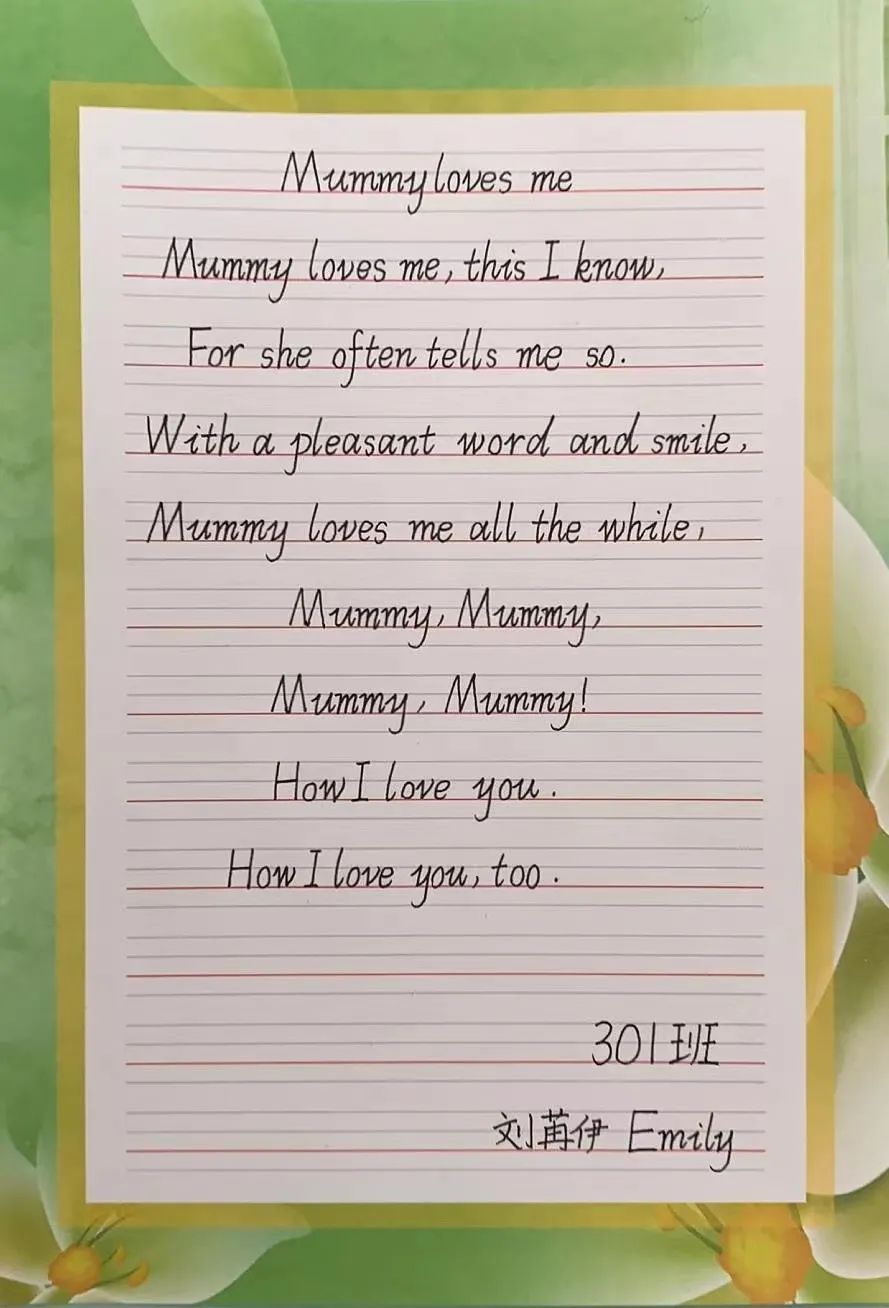 Mummy loves me
Mummy loves me, this I know,
For she often tells me so.
With a pleasant word and smile,
Mummy loves me all the while,
Mummy, Mummy,
Mummy, Mummy!
How I love you.
How I love you, too.
301班
刘苒伊 Emily